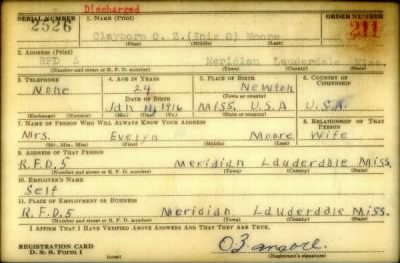 Discharged
SERIAL NUMBER 1. NAME (Print) ORDER NUMBER
2526 Clayborn O. Z. (Inis O) Moore 211
(First) (Middle) (Last)
2. ADDRESS (Print)
RFD Meridian Lauderdale Miss.
(Number and street or R. F. D. number) (Town) (County) (State)
3. TELEPHONE 4. AGE IN YEARS 5. PLACE OF BIRTH 6. COUNTRY OF CITIZENSHIP
None 24 Newton
DATE OF BIRTH (Town or county)
Jan 1916 Miss. U.S.A U.S.A.
(Exchange) (Number) (Mo.) (Day) (Yr.) (State or country)
7. NAME OF PERSON WHO WILL ALWAYS KNOW YOUR ADDRESS 8. RELATIONSHIP OF THAT PERSON
Mrs. Evelyn Moore Wife
(Mr., Mrs., Miss) (First) (Middle) (Last)
9. ADDRESS OF THAT PERSON
R.F.D.5 Meridian Lauderdale Miss.
(Number and street or R. F. D. number) (Town) (County) (State)
10. EMPLOYER'S NAME
Self
11. PLACE OF EMPLOYMENT OR BUSINESS
R.F.D.5 Meridian Lauderdale Miss.
(Number and street or R. F. D. number) (Town) (County) (State)
I AFFIRM THAT I HAVE VERIFIED ABOVE ANSWERS AND THAT THEY ARE TRUE.
REGISTRATION CARD
D. S. S. Form 1
O Z Moore.
(Registrant's signature)